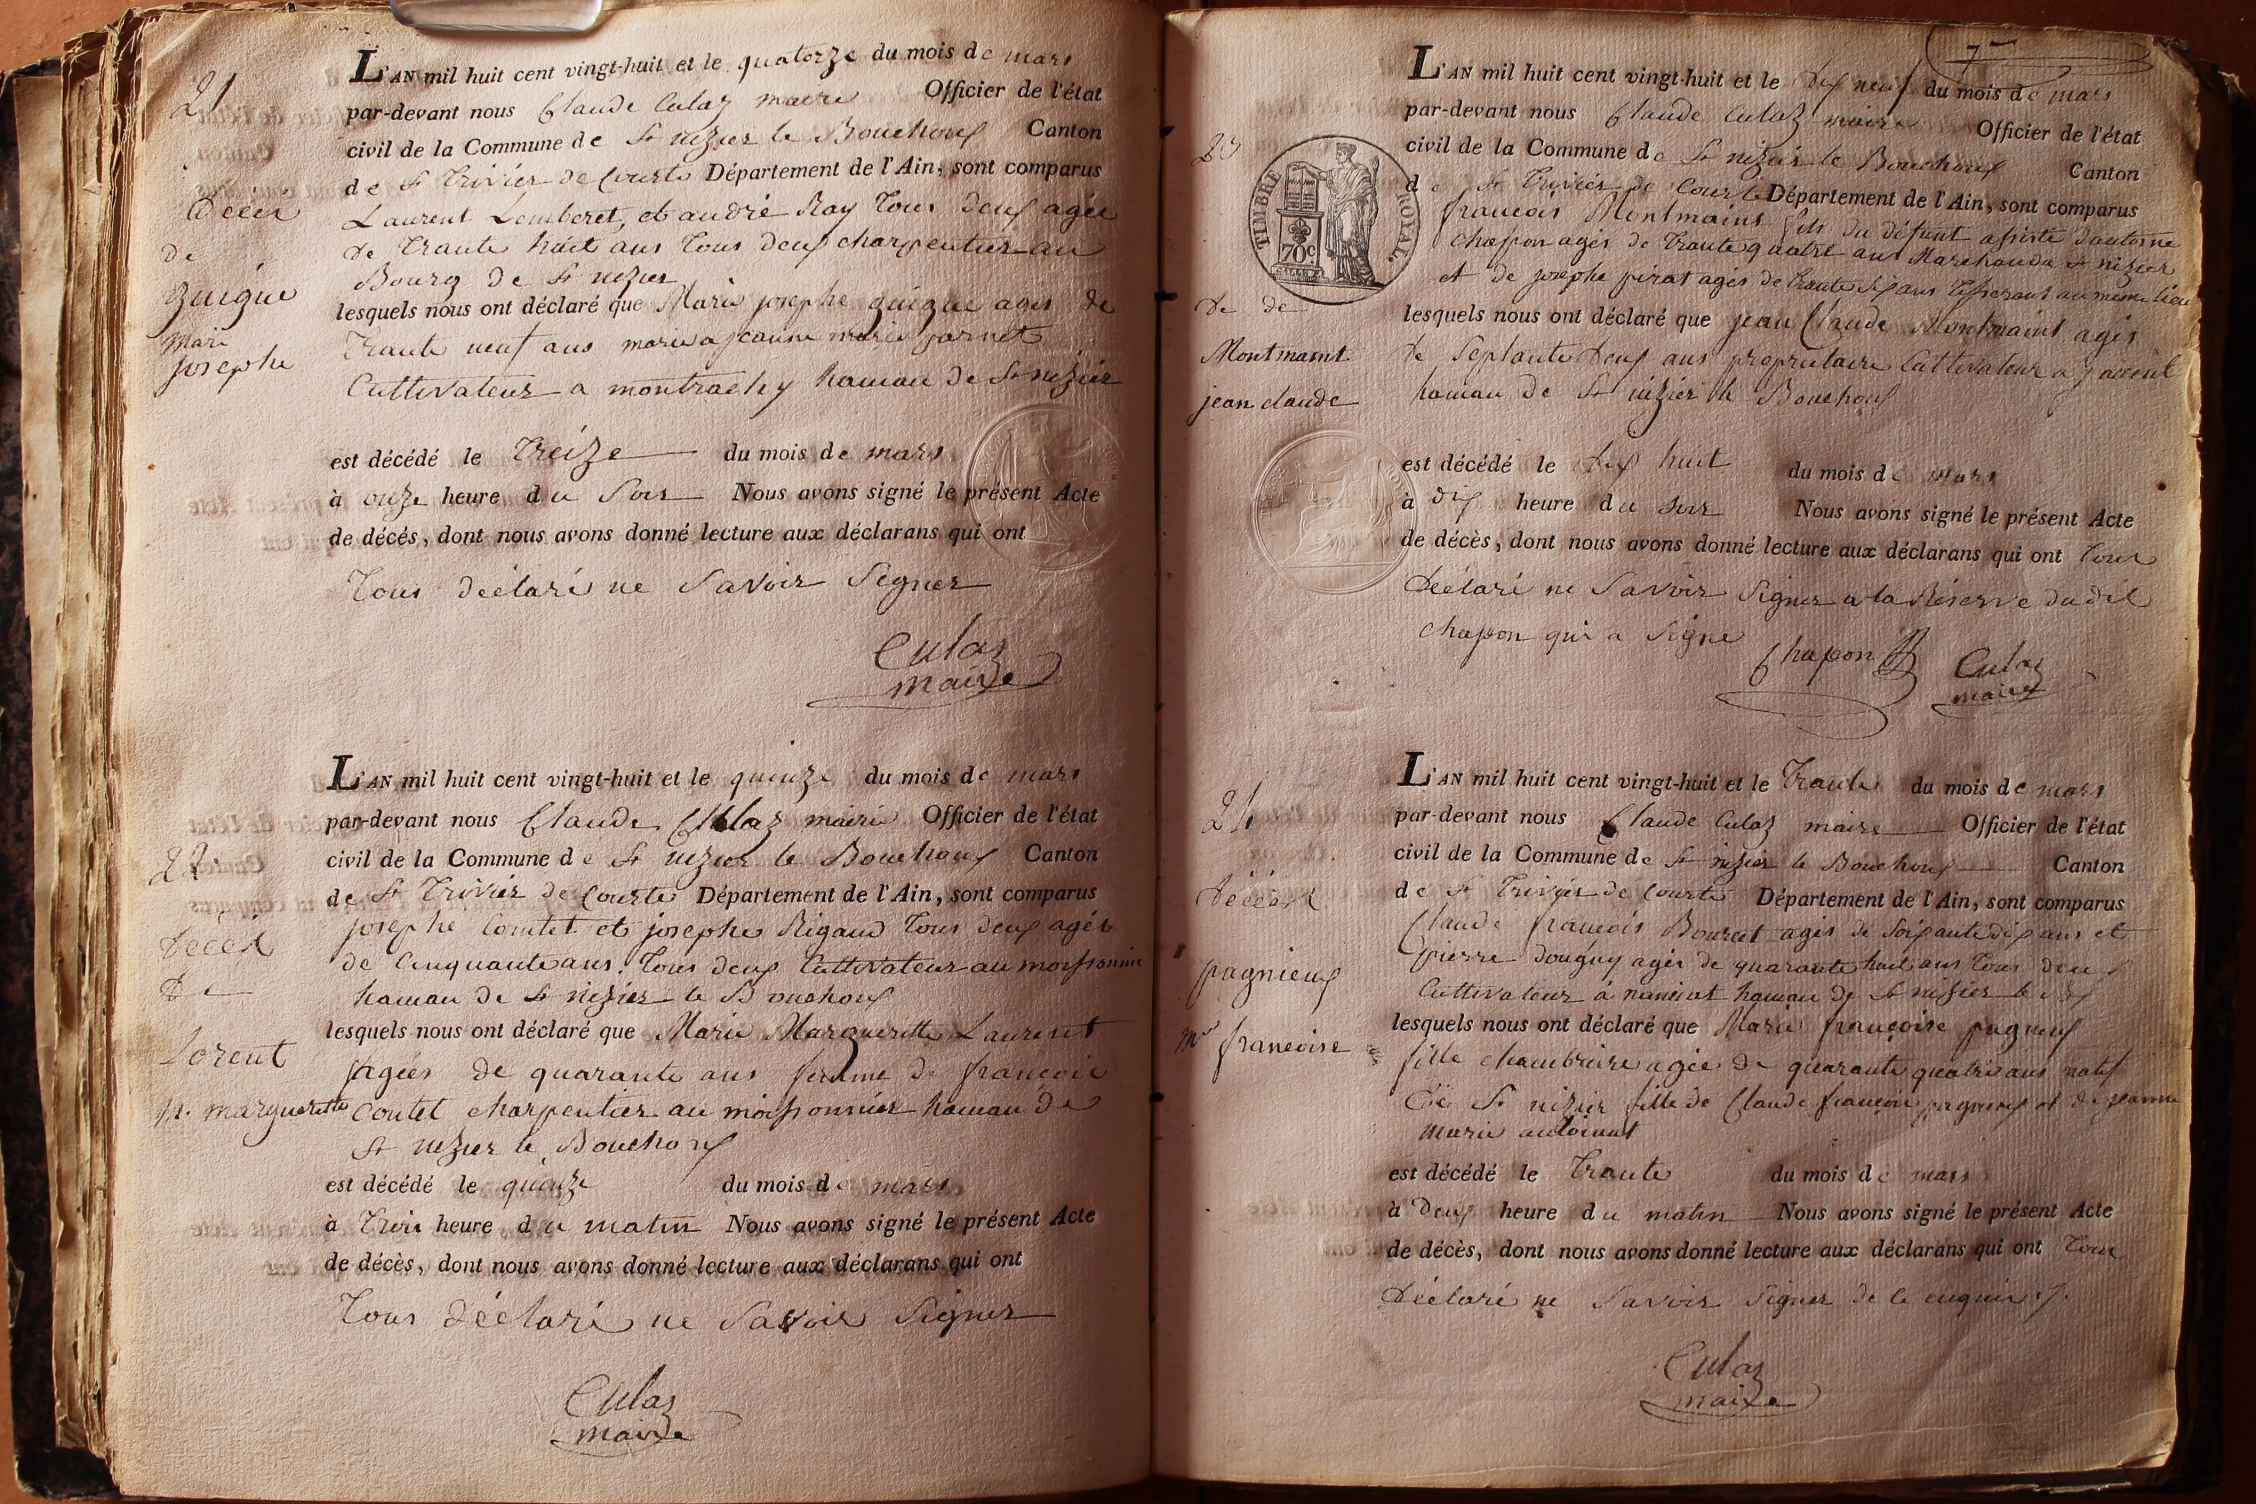 21
L'AN mil huit cent vingt-huit et le quatorze du mois de mars
par-devant nous Claude Culaz maire Officier de l'état
civil de la Commune de St nizier le Bouchoux Canton
de St Trivier de Courte Département de l'Ain, sont comparus
Laurent Lemberet, et andré Ray Tous deux agés
de Trante huit ans Tous deux charpentier au
Bourg de St nizier
lesquels nous ont déclaré que Marie josephe guigue agés de
Trante neuf ans marie a jeanne marie
Cultivateur a montrachy hamau de St nizier
est décédé le Treize du mois de mars
à onze heure du Soir Nous avons signé le présent Acte
de décés, dont nous avons donné lecture aux déclarans qui ont
Tous déclaré ne Savoir Signer
Culaz
maire
Décés
de
guigue
Mari
josephe
22
L'AN mil huit cent vingt-huit et le quinze du mois de mars
par-devant nous Claude Culaz maire Officier de l'état
civil de la Commune de St nizier le Bouchoux Canton
de St Trivier de Courte Département de l'Ain, sont comparus
josephe Comtet et josephe Rigaud Tous deux agés
de Cinquante ans Tous deux Cultivateur au moissonnier
hamau de St nizier le Bouchoux
lesquels nous ont déclaré que Marie Marguerette Laurent
agées de quarante ans femme de francois
Contet charpentier au moissonnier hamau de
St nizier le Bouchoux
est décédé le quinze du mois de mars
à Trois heure du matin Nous avons signé le présent Acte
de décès, dont nous avons donné lecture aux déclarans qui ont
Tous Déclaré ne Savoir Signer
Culaz
maire
Décéd
De
Lorent
M. marguerette
7
23
TIMBRE ROYAL.
70c
L'AN mil huit cent vingt-huit et le dix neuf du mois de mars
par-devant nous Claude Culaz maire Officier de l'état
civil de la Commune de St nizier le Bouchoux Canton
de St Trivier de Courte Département de l'Ain, sont comparus
francois Montmaint fils du défunt assiste dantoine
Chapon agés de Trante quatre ans Marchand a St nizier
et de josephe pirat agés de trante six ans Tisserant au même lieu
lesquels nous ont déclaré que jean Claude Montmaint agés
de Septante deux ans propriétaire Cultivateur a
hamau de St nizier le Bouchoux
est décédé le dix huit du mois de mars
à dix heure du soir Nous avons signé le présent Acte
de décès, dont nous avons donné lecture aux déclarans qui ont Tous
Déclaré ne Savoir Signer a la Réserve du dit
Chapon qui a Signe
Chapon
Culaz
maire
De de
Montmaint
jean claude
24
L'AN mil huit cent vingt-huit et le Trante du mois de mars
par-devant nous Claude Culaz maire Officier de l'état
civil de la Commune de St nizier le Bouchoux Canton
de St Trivier de Courte Département de l'Ain, sont comparus
Claude francois agés de Soixante dix ans et
pierre agés de quarante huit ans Tous deux
Cultivateur á hamau de St nizier le
lesquels nous ont déclaré que Marie françoise pagneux
fille chambriere agée de quarante quatre ans natif
de St nizier fille de Claude françois pagneux et de jeanne
Marie
est décédé le Trante du mois de mars
à Deux heure du matin Nous avons signé le présent Acte
de décès, dont nous avons donné lecture aux déclarans qui ont Tous
Déclaré ne Savoir Signer de ce enquis
Culaz
maire
pagnieux
Mie francoise